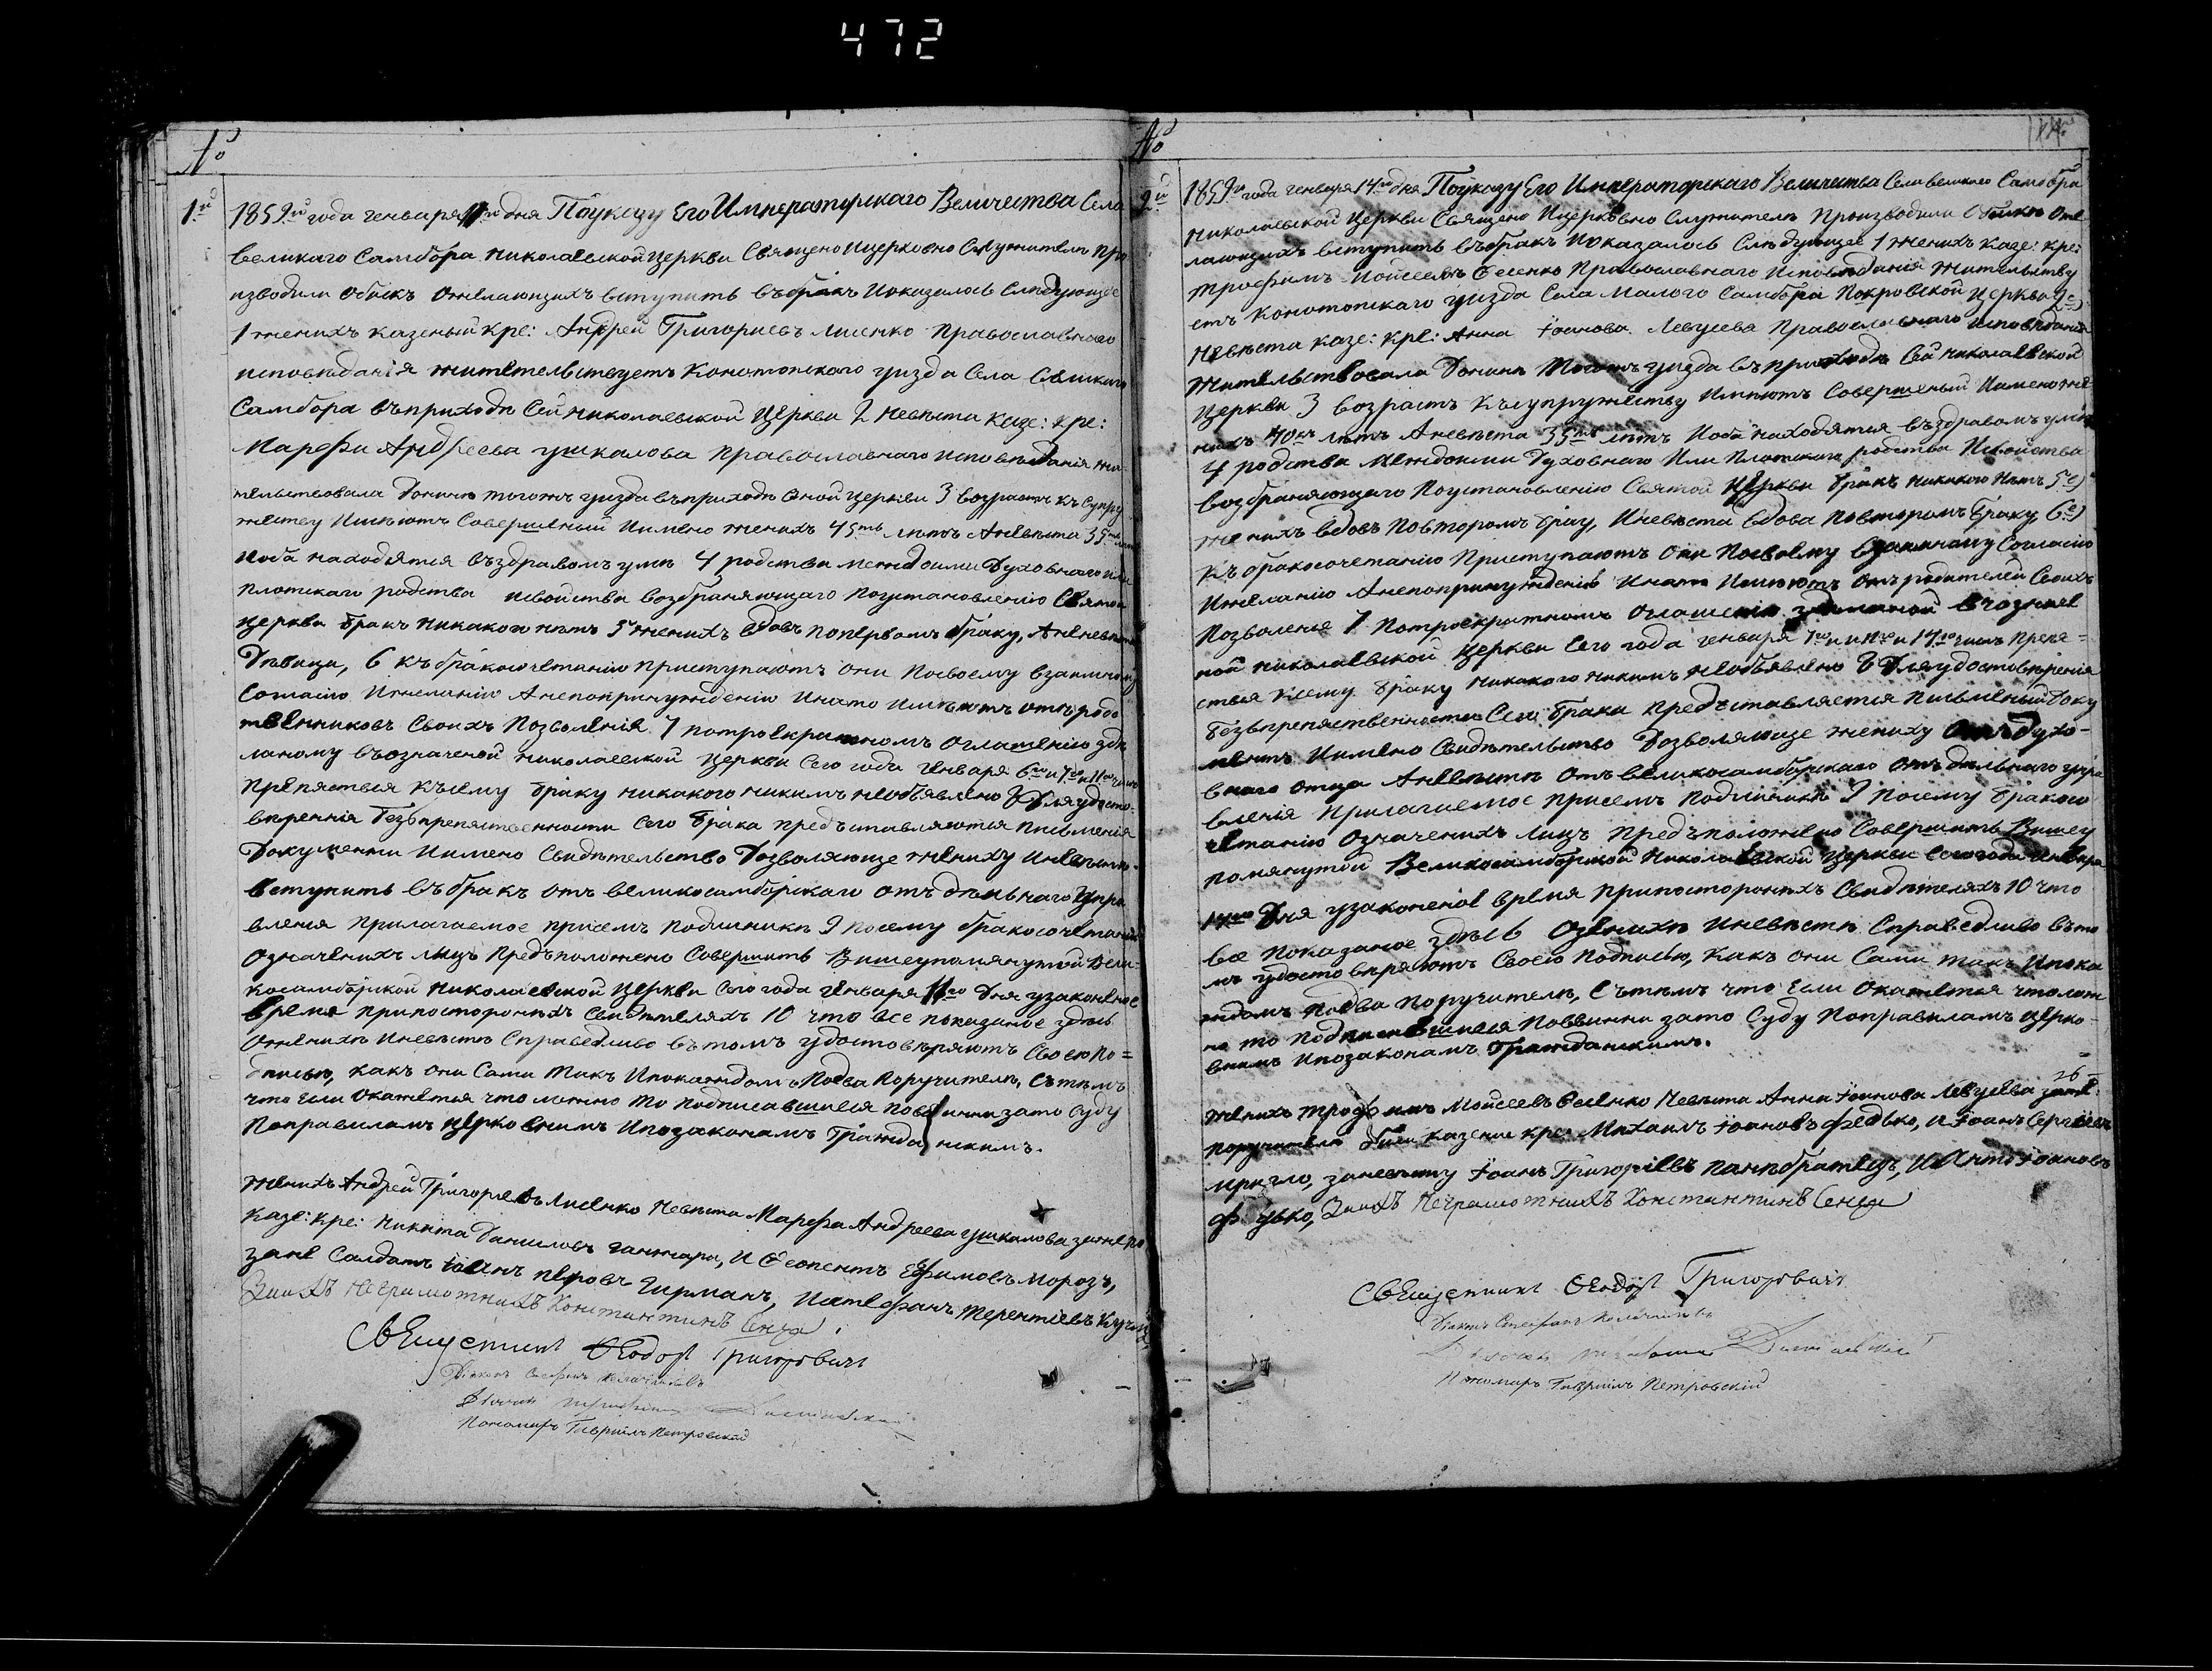 472
№
1й
1859го года генваря 11го дня По указу Его Императорскаго Величества Села
великаго Самбора Николаевской церкви Священо Ицерковно Служители про
изводили обыск ожелающихъ вступить въ бракъ Иоказалось Следующее
1 женихъ казеный кре: Андрей Григориевъ Лисенко Православнаго
исповѣданія жительствуетъ Конотопскаго уизда Села великаго
Самбора въ приходѣ Сей Николаевской Церкви 2 Невѣста Казе: кре:
Марфа Андреева ушкалова Православнаго исповѣданія жи
тельствовала донинѣ тогожъ уизда въ приходѣ оной Церкви 3 возрастъ къ супру
жеству Имѣютъ Совершеный Имено женихъ 45ть лѣтъ Аневѣста 35ть
Иоба находятся въ здравомъ умѣ 4 родства между ими Духовнаго или
плотскаго родства исвойства возбраняющаго поустановленію Святой
церкви бракъ никакого нѣтъ 5 женихъ вдовъ поперьвомъ браку, Аневѣста
Дѣвица, 6 къ бракосочетанію приступаютъ они посвоему взаимному
Согласію Ижеланію Анепопринужденію Инато имѣютъ отъ род
твенниковъ своихъ Позволенія 7 потроекратномъ оглашенію здѣ
ланому въозначеной николаевской церкви Сего года Генваря 6го и 7го и 11го чис
препяствя къ сему браку никакого никимъ необъявлено 8 Для удосто
вѣренія безъпрепяственности сего брака предъставляются писменія
Документи Имено Свидѣтельство Дозволяюще жениху Иневѣстѣ
вступить въ бракъ отъ великосамборскаго отъдѣльнаго упра
вленія прилагаемое присемъ подлинникѣ 9 посему бракосочетаній
означенихъ лицъ предположено Совершить Вишеупомянутой Вели
косамборской Николаевской Церкви Сего года Генваря 11го Дня узаконеное
время припосторонихъ Свидѣтеляхъ 10 что все показаное здѣсь
Оженихѣ Иневѣстѣ Справедливо въ томъ удостовѣряютъ Своею По=
дписью, какъ они Сами такъ Ипокаждомъ Подва Поручители, Сътѣмъ
что Если окажется что ложно то подписавшиеся повинни зато Суду
Поправиламъ Церковнимъ Ипозаконамъ Граждански мъ.
женихъ Андрей Григориевъ Лисенко Невѣста Марфа Андреева ушкалова зажен
казе: кре: Никита Даниловъ ганжара, И Феопентъ Ефимовъ Морозъ,
зане Салдатъ Іоанъ Гирманъ, Истефанъ Терентіевъ
Заихъ Неграмотнихъ Константинъ Сенга
Священникъ Феодоръ Григоровичъ
Діаконъ Стефанъ
Пономаръ Гавріилъ Петровскій
№
2й
1859го года генваря 14го дня По указу Его Императорскаго Величества Села великаго Самбора
Николаевской Церкви Священо Ицерковно Служители Производили Обыскъ Оже
лающихъ вступить въ бракъ Иоказалось Слѣдующее 1 женихъ казе: кре:
Трофимъ Мойсеевъ Православнаго Исповѣданія Жительству
етъ Конотопскаго уизда Села Малого Самбора Покровской Церкви 2е)
Невѣста казе: кре: Анна Іоанова Левусева Православнаго исповѣданія
Жительствовала Донинѣ тогожъ уизда въ приходѣ Сей Николаевской
Церкви 3 возрастъ Къ супружеству Имѣютъ Совершеный Имено же
нихъ 40къ лѣтъ Аневѣста 35ть лѣтъ Иоба находятся въздравомъ умѣ
4 родства Междоими Духовнаго Или Плотскаго родства Исвойства
Возбраняющаго Поустановленію Святой Церкви бракъ никакого Нѣтъ 5е)
женихъ вдовъ повторомъ браку, Иневѣста вдова повторомъ браку, 6е)
Къ бракосочетанію Приступаютъ они Посвоему взаимному Согласію
Ижеланію Анепопринужденію Инато Имѣютъ отъ родителей Своихъ
Позволенье 7 Потроекратномъ Оглашеніи зделаной Вчозначе
ной Николаевской Церкви Сего года генваря 7го и 11го и 14го чисъ препя=
ствя Ксему браку Никакого никимъ необъявлено 8 Дляудостовѣренія
безъпрепяственности Сего брака предъставляется писменый Доку
ментъ Имено Свидѣтельство Дозволяюще жениху отъ Духо-
внаго отца Аневѣсти отъ великосамборскаго отъдѣльнаго упра
вленья Прилагаемое присемъ подлиникѣ 9 Посему бракосо
четанію означенихъ лицъ предположено Совершить Вишеу
помянутой Великосамборской Николаевской Церкви Сего года Генвара
14го Дня узаконеное время припосторонихъ Свидѣтеляхъ 10 что
все показаное здѣсь Оженихѣ Иневѣстѣ Справедливо въто
мъ удостовѣряютъ Своею Подписью, Какъ они Сами такъ Ипока
ждомъ Подва поручители, Сътѣмъ что Если Окажется что лож
но то подписавшиеся Повинни зато Суду Поправиламъ Церко-
внимъ Ипозаконамъ Гражданскимъ.
женихъ Трофимъ Мойсеевъ Невѣста Анна Іоанова Левусева
поручители були казение кре: Михаилъ Іоановъ Федько, И Іоанъ Сергіевъ
, заневѣсту Іоанъ Григоріевъ Панибратецъ, И Іоановъ
Заихъ Неграмотнихъ Константинъ Сенга
Священникъ Феодоръ Григоровичъ
Діаконъ Стефанъ
Пономаръ Гавріилъ Петровскій